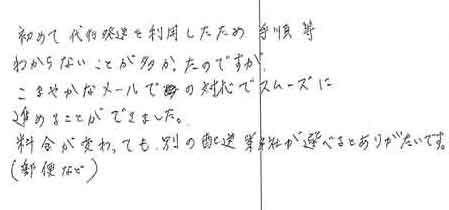 初めて代行発送を利用したため手順等
わからないことが多かったのですが、
こまやかなメールでの対応でスムーズに
進めることができました。
料金が変わっても、別の配送業者が選べるとありがたいです。
(郵便など)